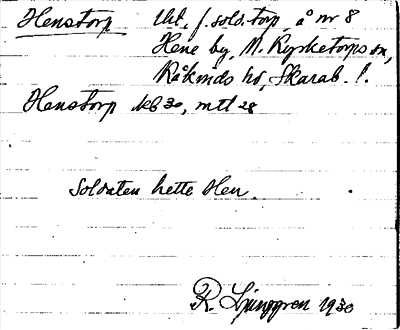 Henstorp Utt. f. sold.torp, å nr 8
Hene by, N. Kyrketorps sn,
Kåkinds hd, Skarab. l.
Henstorp JEB 30, mtl 28
Soldaten hette Hen.
R. Ljunggren 1930